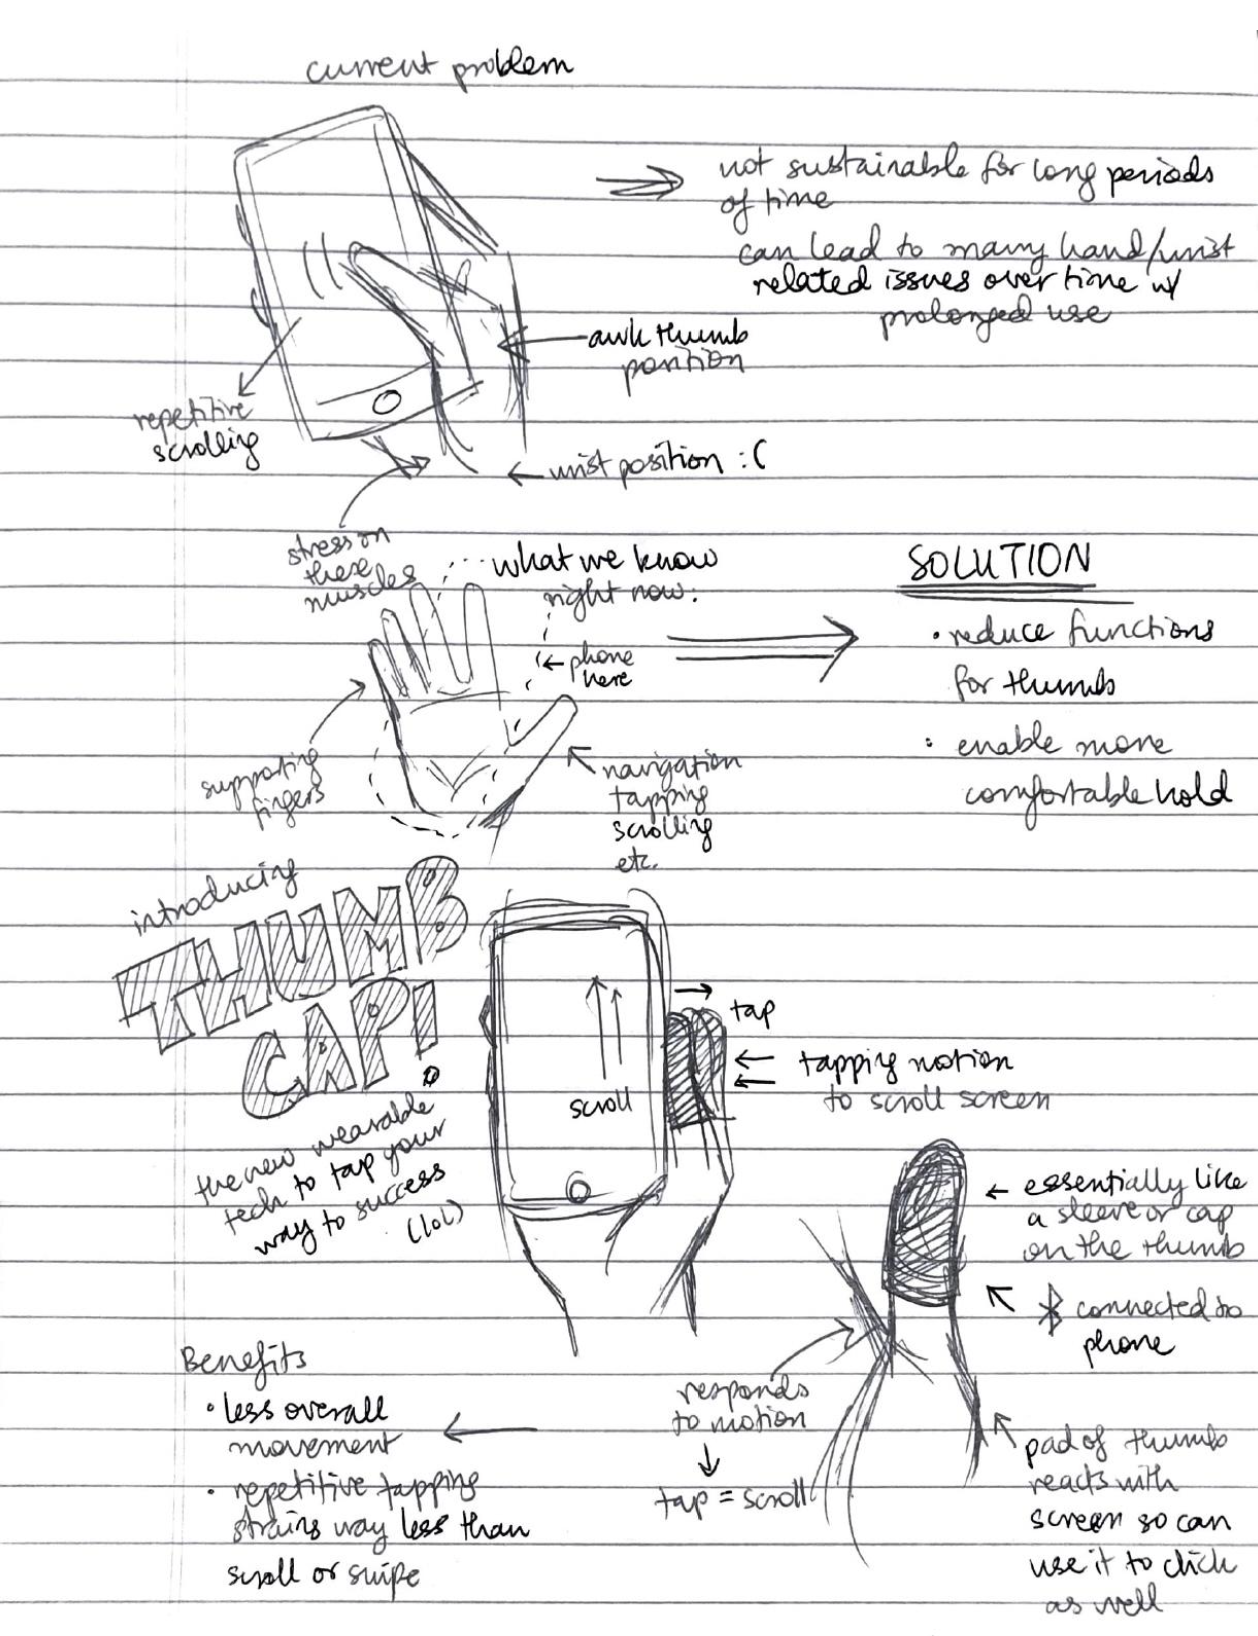 current problem
not sustainable for long periods
of time
can lead to many hand/wrist
related issues over time w/
prolonged use
awk thumb
position
repetitive
scrolling
wrist position :(
stress on
these
muscles
what we know
right now:
← phone
here
supporting
fingers
navigation
tapping
scrolling
etc.
SOLUTION
• reduce functions
for thumb
• enable more
comfortable hold
introducing
THUMB
CAP!
the new wearable
tech to tap your
way to success
(lol)
scroll
tap
tapping motion
to scroll screen
← essentially like
a sleeve or cap
on the thumb
connected to
phone
responds
to motion
tap = scroll
pad of thumb
reacts with
screen so can
use it to click
as well
Benefits
• less overall
movement
• repetitive tapping
strains way less than
scroll or swipe